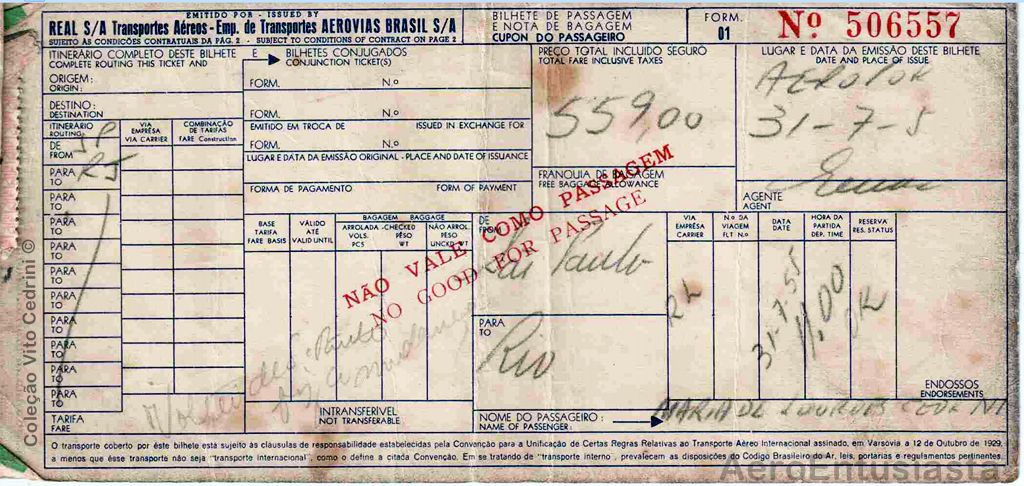 EMITIDO POR - ISSUED BY
REAL S/A Transportes Aéreos - Emp. de Transportes AEROVIAS BRASIL S/A
SUJEITO ÀS CONDIÇÕES CONTRATUAIS DA PÁG. 2 - SUBJECT TO CONDITIONS OF CONTRACT ON PAGE 2
BILHETE DE PASSAGEM
E NOTA DE BAGAGEM
CUPON DO PASSAGEIRO
FORM.
01
Nº 506557
ITINERÁRIO COMPLETO DESTE BILHETE E BILHETES CONJUGADOS
COMPLETE ROUTING THIS TICKET AND CONJUNCTION TICKET(S)
ORIGEM:
ORIGIN:
FORM. N.o
DESTINO:
DESTINATION
FORM. N.o
PREÇO TOTAL INCLUIDO SEGURO
TOTAL FARE INCLUSIVE TAXES
55900
LUGAR E DATA DA EMISSÃO DESTE BILHETE
DATE AND PLACE OF ISSUE
AEROPOR
31-7-5
ITINERÁRIO
ROUTING:
VIA
EMPRÊSA
VIA CARRIER
COMBINAÇÃO
DE TARIFAS
FARE Construction
EMITIDO EM TROCA DE ISSUED IN EXCHANGE FOR
DE
FROM
SP
LUGAR E DATA DA EMISSÃO ORIGINAL - PLACE AND DATE OF ISSUANCE
PARA
TO
RJ
FRANQUIA DE BAGAGEM
FREE BAGGAGE ALLOWANCE
FORMA DE PAGAMENTO FORM OF PAYMENT
AGENTE
AGENT
PARA
TO
PARA
TO
PARA
TO
PARA
TO
PARA
TO
PARA
TO
PARA
TO
PARA
TO
PARA
TO
TARIFA
FARE
BASE
TARIFA
FARE BASIS
VÁLIDO
ATÉ
VALID UNTIL
BAGAGEM BAGGAGE
ARROLADA - CHECKED
VOLS. PÊSO
PCS WT
NÃO ARROL.
PÊSO
UNCKD WT
DE
FROM
São Paulo
VIA
EMPRÊSA
CARRIER
N.o DA
VIAGEM
FLT N.o
DATA
DATE
HORA DA
PARTIDA
DEP. TIME
RESERVA
RES. STATUS
RL
31-7-55
11,00
OK
NÃO VALE COMO PASSAGEM
NO GOOD FOR PASSAGE
PARA
TO
Rio
ENDOSSOS
ENDORSEMENTS
INTRANSFERÍVEL
NOT TRANSFERABLE
NOME DO PASSAGEIRO:
NAME OF PASSENGER:
MARIA DE LOURDES CEDRINI
O transporte coberto por êste bilhete está sujeito às cláusulas de responsabilidade estabelecidas pela Convenção para a Unificação de Certas Regras Relativas ao Transporte Aéreo Internacional assinado, em Varsóvia a 12 de Outubro de 1929,
a menos que êsse transporte não seja "transporte internacional", como o define a citada Convenção. Em se tratando de "transporte interno", prevalecem as disposições do Código Brasileiro do Ar, leis, portarias e regulamentos pertinentes.
Coleção Vito Cedrini ©
AeroEntusiasta